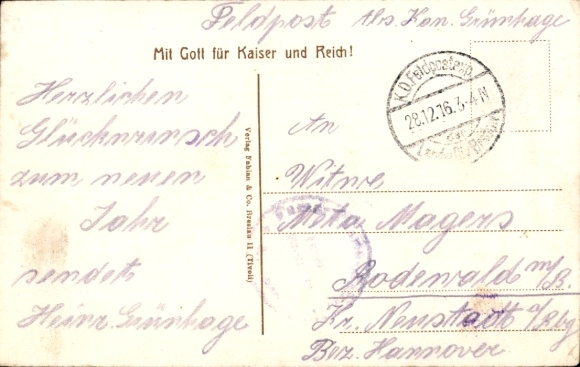 Feldpost Abs. Kan. Grünhage
Mit Gott für Kaiser und Reich!
Herzlichen
Glückwunsch
zum neuen
Jahr
sendet
Heinr. Grünhage
Verlag Fabian & Co. Breslau 11 (Tivoli)
K.D. Feldpostexp.
28.12.16. 3-4 N
der
An
Witwe
Meta Magers
Rodewald m/B.
Kr. Neustadt a/Rbg
Bez. Hannover